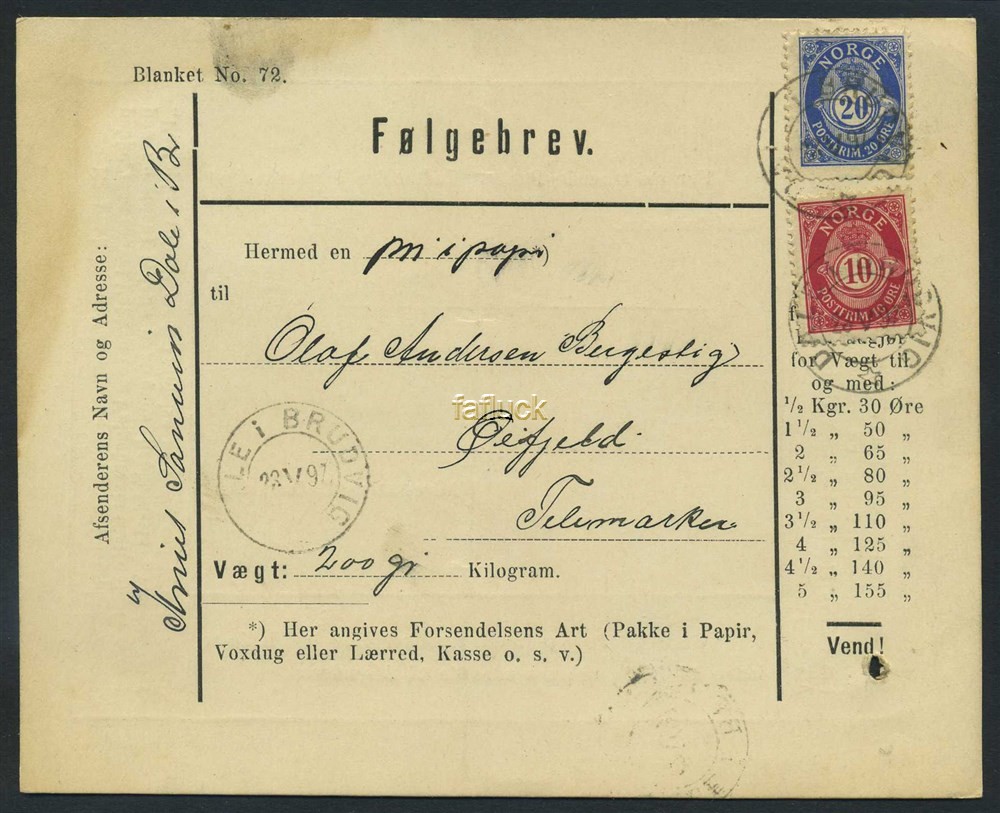 Blanket No. 72.
Følgebrev.
NORGE
20
POSTFRIM. 20 ØRE
NORGE
10
POSTFRIM. 10 ØRE
Afsenderens Navn og Adresse:
Dale i Br
Hermed en p m i papi *)
til
Olaf Andersen Bergestig
fafluck
Øifjeld
Telemarken
LE i BRUDVIG
23 V 97
Vægt: 200 gr Kilogram.
*) Her angives Forsendelsens Art (Pakke i Papir,
Voxdug eller Lærred, Kasse o. s. v.)
for Vægt til
og med:
1/2 Kgr. 30 Øre
1 1/2 „ 50 „
2 „ 65 „
2 1/2 „ 80 „
3 „ 95 „
3 1/2 „ 110 „
4 „ 125 „
4 1/2 „ 140 „
5 „ 155 „
Vend!